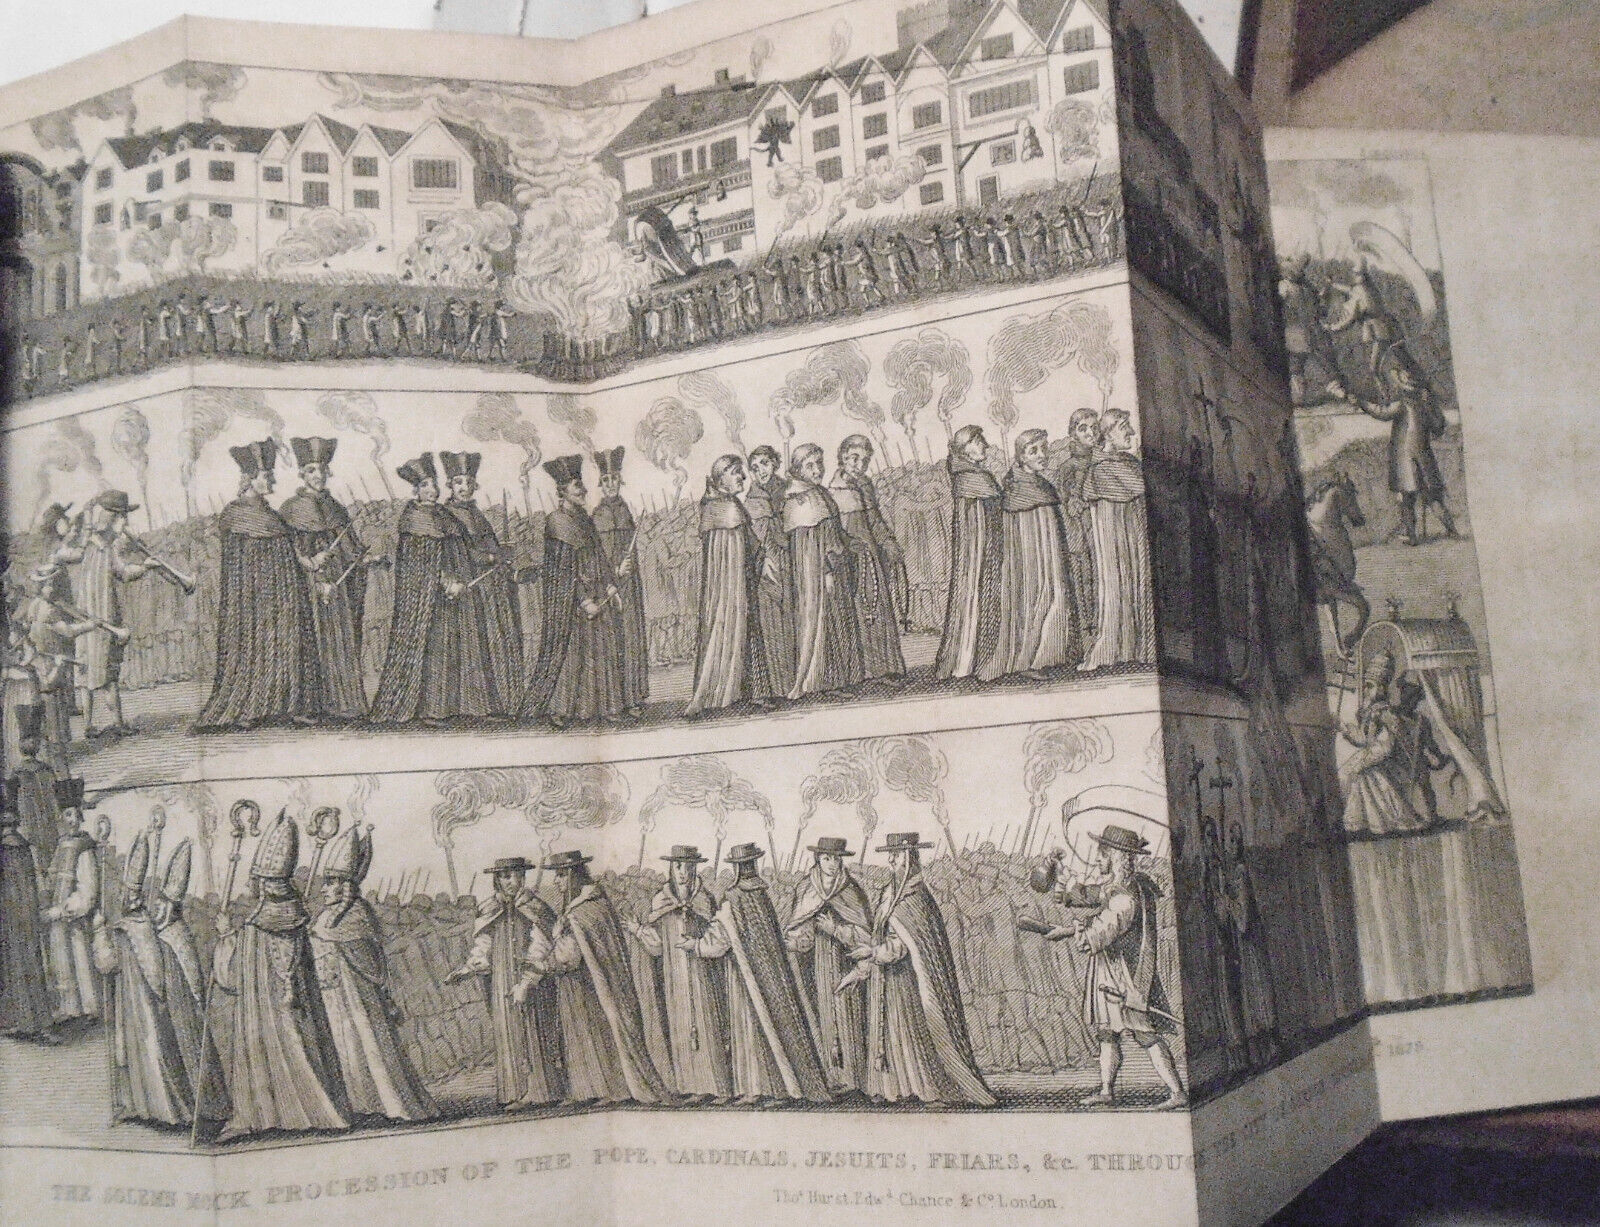 THE SOLEMN MOCK PROCESSION OF THE POPE, CARDINALS, JESUITS, FRIARS, &c. THROUGH THE CITY 1679.
Thos. Hurst, Edwd. Chance & Co. London.